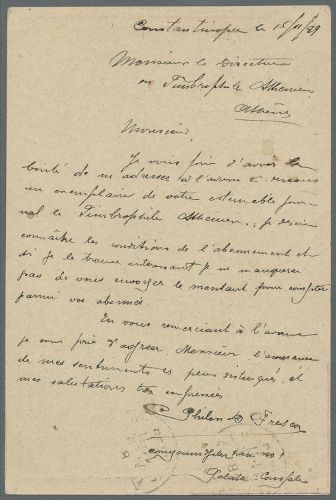 Constantinople le 15/11/89
Monsieur le Directeur
du Timbrophile Athenien
Athènes
Monsieur,
Je vous prie d'avoir la
bonté de m'adresser à l'adresse ci-dessous
un exemplaire de votre estimable jour-
nal le Timbrophile Athenien, je desire
connaître les conditions de l'abonnement et
si je le trouve interessant je ne manquerai
pas de vous envoyer le montant pour compter
parmi vos abonnés
En vous remerciant à l'avance
je vous prie d'agréer Monsieur l'assurance
de mes sentiments et mes
mes salutations très empressées
Philon Fresco
Galata - Constple